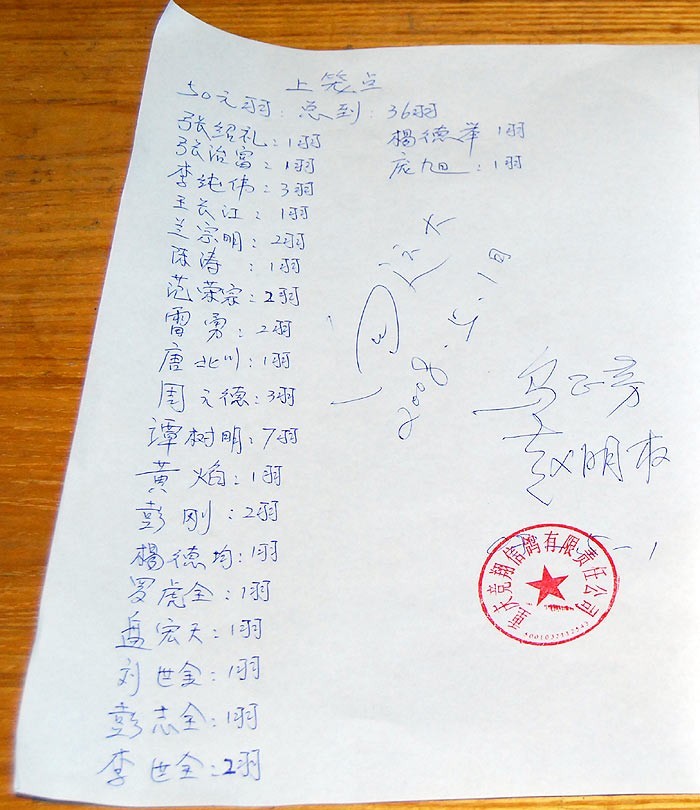 上笼点
50元羽:总到:36羽
张绍礼:1羽
张治富:1羽
李纯伟:3羽
王长江:1羽
兰宗明:2羽
陈涛:1羽
范荣宗:2羽
雷勇:2羽
唐北川:1羽
周元德:3羽
谭树明:7羽
黄焰:1羽
彭刚:2羽
楊德均:1羽
罗虎全:1羽
孟宏天:1羽
刘世金:1羽
彭志全:1羽
李世全:2羽
楊德举 1羽
庞旭:1羽
2008.5.1日
赵明权
重庆竞翔信鸽有限责任公司